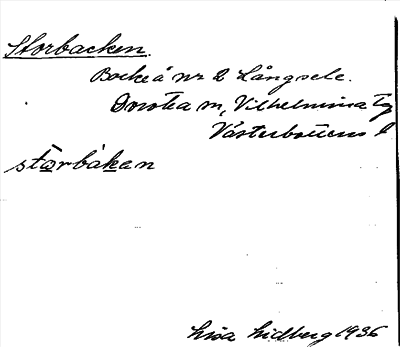 Storbacken.
Backe å nr 2 Långsele.
Dorotea m, Vilhelmina tg
Västerbottens l
stωrbàkan
Lisa Lidberg 1936